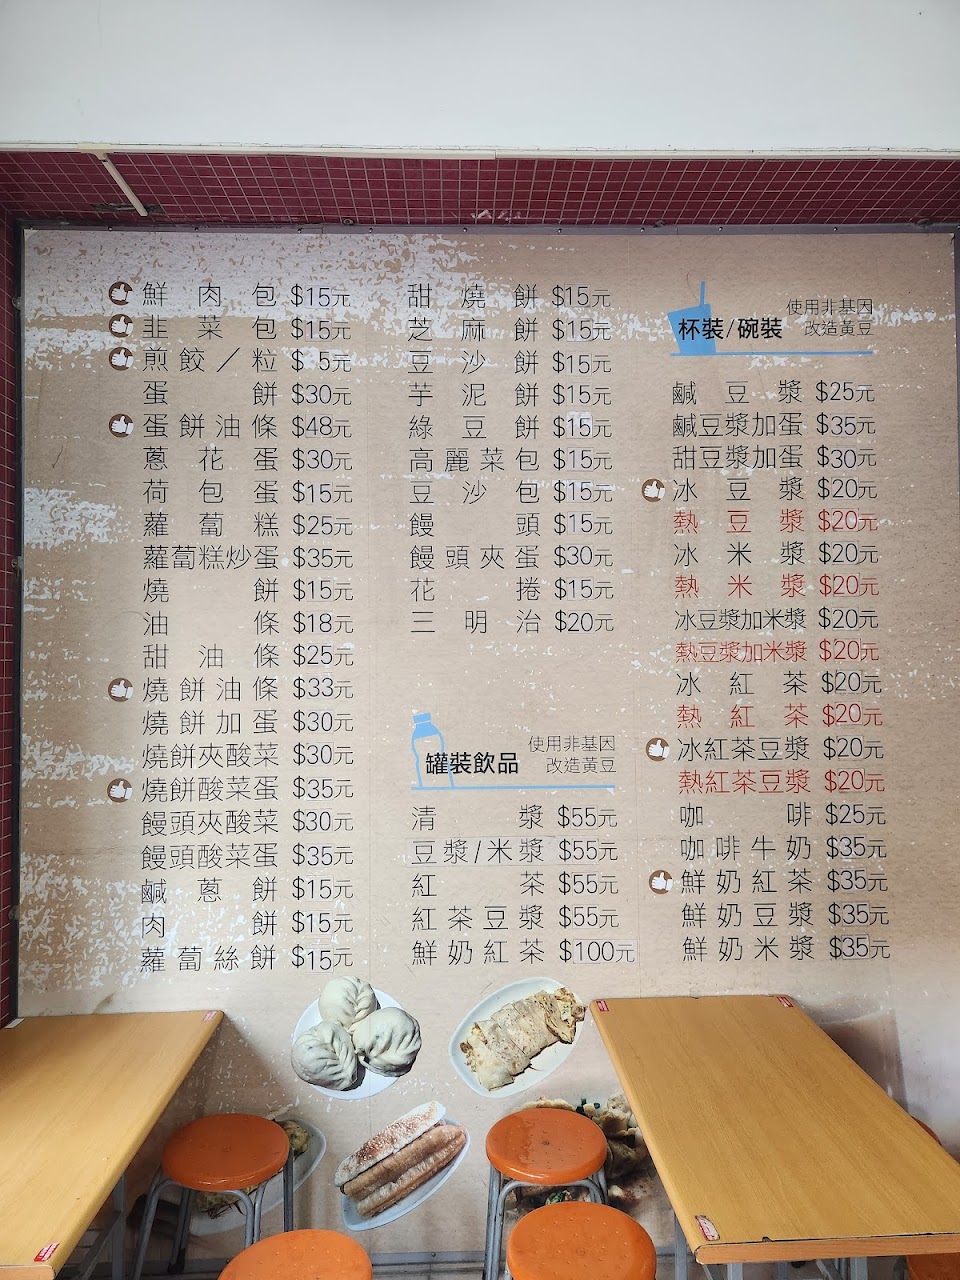 鮮肉包 $15元
韭菜包 $15元
煎餃／粒 $5元
蛋餅 $30元
蛋餅油條 $48元
蔥花蛋 $30元
荷包蛋 $15元
蘿蔔糕 $25元
蘿蔔糕炒蛋 $35元
燒餅 $15元
油條 $18元
甜油條 $25元
燒餅油條 $33元
燒餅加蛋 $30元
燒餅夾酸菜 $30元
燒餅酸菜蛋 $35元
饅頭夾酸菜 $30元
饅頭酸菜蛋 $35元
鹹蔥餅 $15元
肉餅 $15元
蘿蔔絲餅 $15元
甜燒餅 $15元
芝麻餅 $15元
豆沙餅 $15元
芋泥餅 $15元
綠豆餅 $15元
高麗菜包 $15元
豆沙包 $15元
饅頭 $15元
饅頭夾蛋 $30元
花捲 $15元
三明治 $20元
罐裝飲品
使用非基因
改造黃豆
清漿 $55元
豆漿/米漿 $55元
紅茶 $55元
紅茶豆漿 $55元
鮮奶紅茶 $100元
杯裝/碗裝
使用非基因
改造黃豆
鹹豆漿 $25元
鹹豆漿加蛋 $35元
甜豆漿加蛋 $30元
冰豆漿 $20元
熱豆漿 $20元
冰米漿 $20元
熱米漿 $20元
冰豆漿加米漿 $20元
熱豆漿加米漿 $20元
冰紅茶 $20元
熱紅茶 $20元
冰紅茶豆漿 $20元
熱紅茶豆漿 $20元
咖啡 $25元
咖啡牛奶 $35元
鮮奶紅茶 $35元
鮮奶豆漿 $35元
鮮奶米漿 $35元